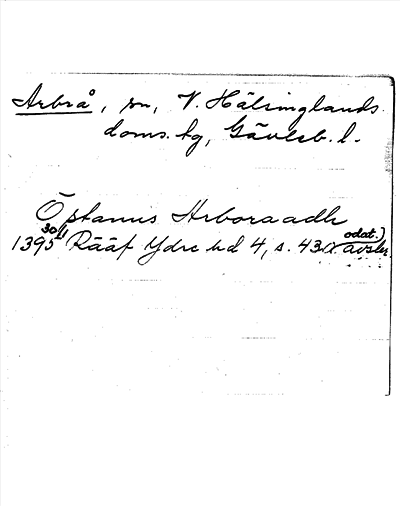 Arbrå, sn, V. Hälsinglands
doms. tg, Gävleb. l.
Östanus Arboraadh
1395 30/1 Rääf Ydre hd 4, s. 43 (odat.) avskr.